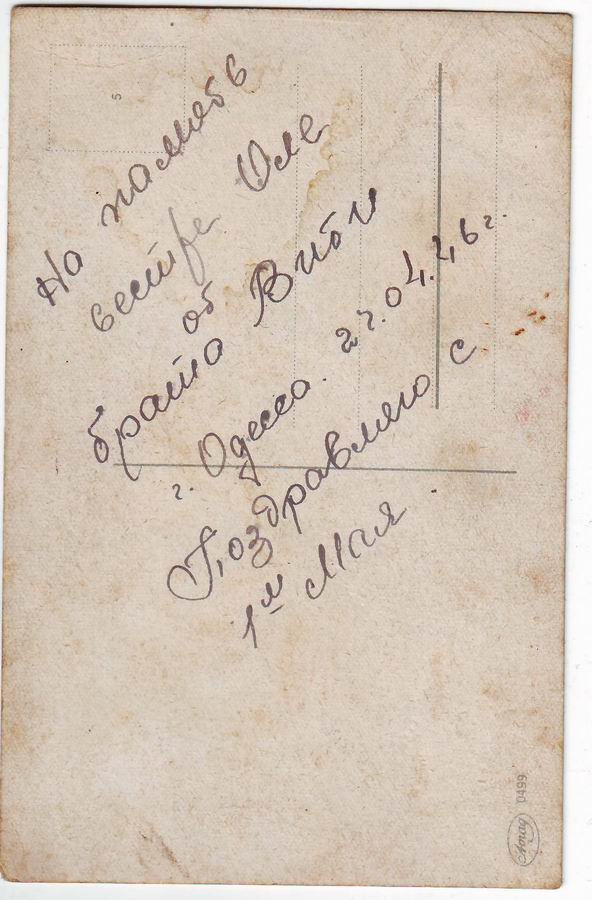 На память
сестре Оле
от
брата Вити
г. Одесса. 27.04.46г.
Поздравляю с
1м Мая
5
0499